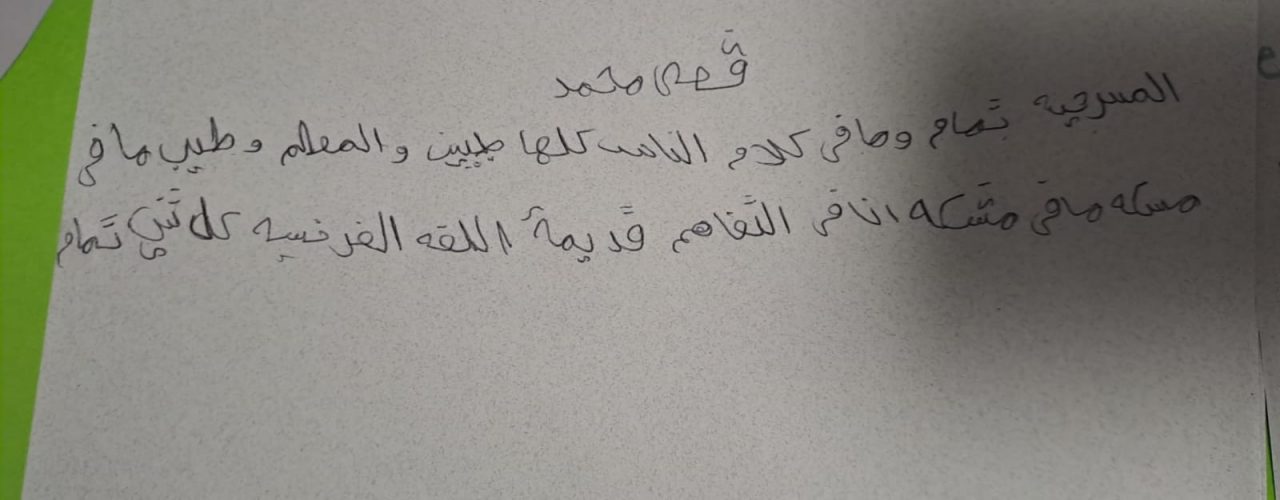 قصي محمد
المسرحيه تمام وما في كلام الناس كلها طيبين والمعلم وطيب ما في
مسكله ما في مشكله انا في التفاهم قديمة اللغه الفرنسيه كل شي تمام